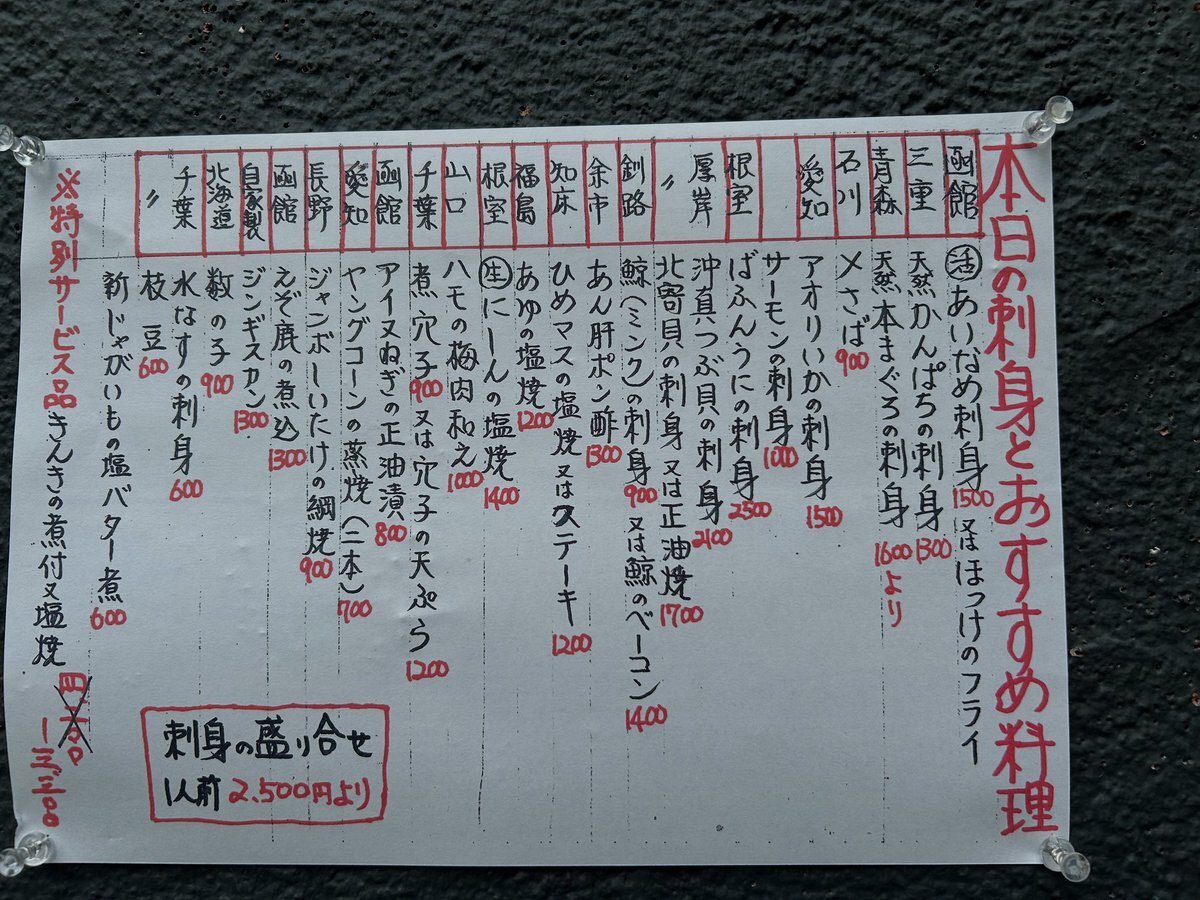 本日の刺身とおすすめ料理
函館 活 あいなめ刺身 1500 又はほっけのフライ
三重 天然かんぱちの刺身 1300
青森 天然本まぐろの刺身 1600より
石川 〆さば 900
愛知 アオリいかの刺身 1500
サーモンの刺身 1000
根室 ばふんうにの刺身 2500
厚岸 沖真つぶ貝の刺身 2100
〃 北寄貝の刺身又は正油焼 1700
釧路 鯨(ミンク)の刺身 900 又は鯨のベーコン 1400
余市 あん肝ポン酢 1300
知床 ひめマスの塩焼又はステーキ 1200
福島 あゆの塩焼 1200
根室 生 にしんの塩焼 1400
山口 ハモの梅肉和え 1000
千葉 煮穴子 900 又は穴子の天ぷら 1200
函館 アイヌねぎの正油漬 800
愛知 ヤングコーンの蒸焼(二本) 700
長野 ジャンボしいたけの網焼 900
函館 えぞ鹿の煮込 1300
自家製 ジンギスカン 1300
北海道 数の子 900
千葉 水なすの刺身 600
〃 枝豆 600
新じゃがいもの塩バター煮 600
※特別サービス品 きんきの煮付又塩焼
刺身の盛り合せ
1人前 2.500円より